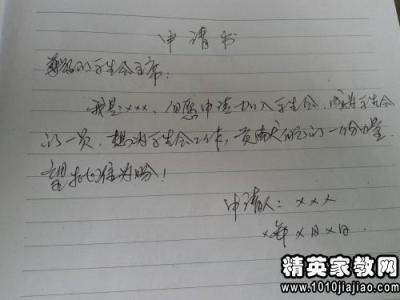 申请书
尊敬的学生会主席：
我是：×××，自愿申请加入学生会，成为学生会
的一员，想为学生会工作，贡献自己的一份力量。
望批准为盼！
申请人：×××
×年×月×日
精英家教网
www.1010jiajiao.com